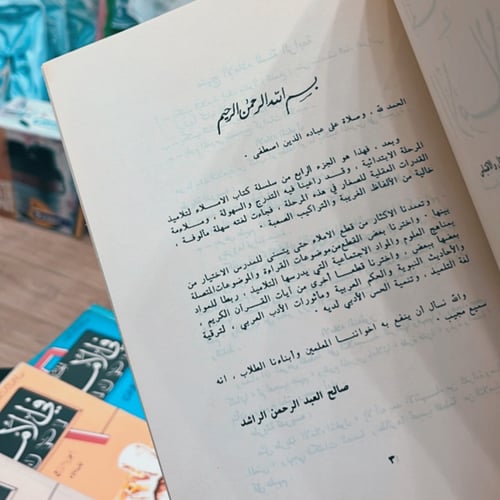 بسم الله الرحمن الرحيم
الحمد لله ، وصلاة على عباده الذين اصطفى .
وبعد ، فهذا هو الجزء الرابع من سلسلة كتاب الاملاء لتلاميذ
المرحلة الابتدائية ، وقد راعينا فيه التدرج والسهولة ، وسلامة
القدرات العقلية للصغار في هذه المرحلة ، فجاءت لغته سهلة مألوفة ،
خالية من الألفاظ الغريبة والتراكيب الصعبة .
وتعمدنا الاكثار من قطع الاملاء حتى يتسنى للمدرس الاختيار من
بينها . واخترنا بعض القطع من موضوعات القراءة والموضوعات المتصلة
بمناهج العلوم والمواد الاجتماعية التي يدرسها التلاميذ ، ربطا للمواد
بعضها ببعض . واخترنا قطعا اخرى من آيات القرآن الكريم ،
والأحاديث النبوية والحكم العربية ومأثورات الأدب العربي ، لترقية
لغة التلميذ ، وتنمية الحس الأدبي لديه .
والله نسأل أن ينفع به اخواننا المعلمين وأبناءنا الطلاب ، انه
سميع مجيب .
صالح العبد الرحمن الراشد
٣